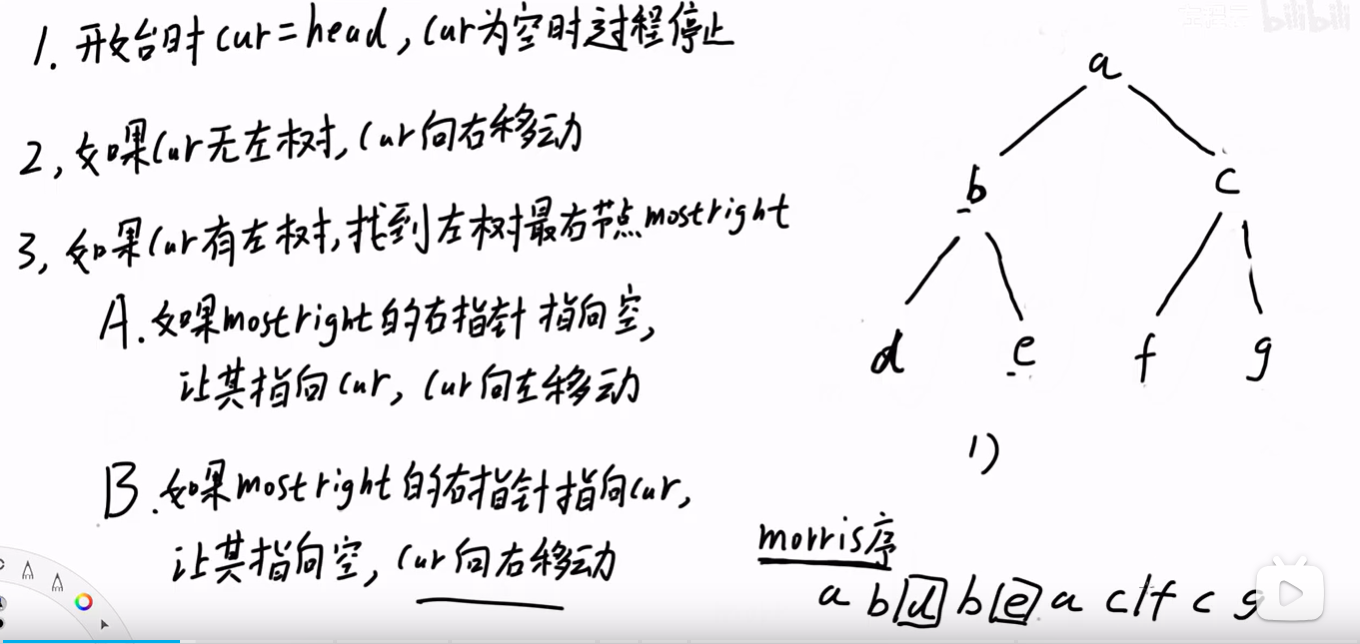 1. 开始时cur=head, cur为空时过程停止
2, 如果cur无左树, cur向右移动
3, 如果cur有左树, 找到左树最右节点mostright
A. 如果mostright的右指针指向空,
让其指向cur, cur向左移动
B. 如果mostright的右指针指向cur,
让其指向空, cur向右移动
bilibili
a
b c
d e f g
1)
morris序
a b d b e a c f c g